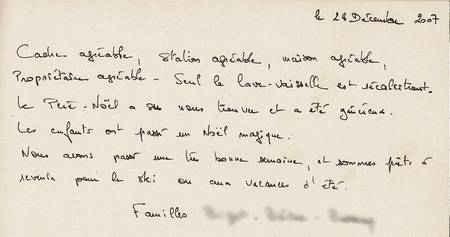 le 28 Décembre 2007
Cadre agréable, Station agréable, maison agréable,
Propriétaire agréable - Seul le lave-vaisselle est récalcitrant.
Le Père-Noël a su nous trouver et a été généreux.
Les enfants ont passé un Noël magique.
Nous avons passé une très bonne semaine, et sommes prêts à
revenir pour le ski ou aux vacances d'été.
Familles